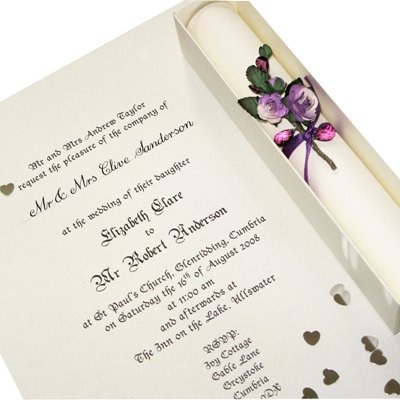 Mr and Mrs Andrew Taylor
request the pleasure of the company of
Mr & Mrs Clive Sanderson
at the wedding of their daughter
Elizabeth Clare
to
Mr Robert Anderson
at St Paul's Church, Glenridding, Cumbria
on Saturday the 16th of August 2008
at 11:00 am
and afterwards at
The Inn on the Lake, Ullswater
RSVP:
Ivy Cottage
Gable Lane
Greystoke
Cumbria